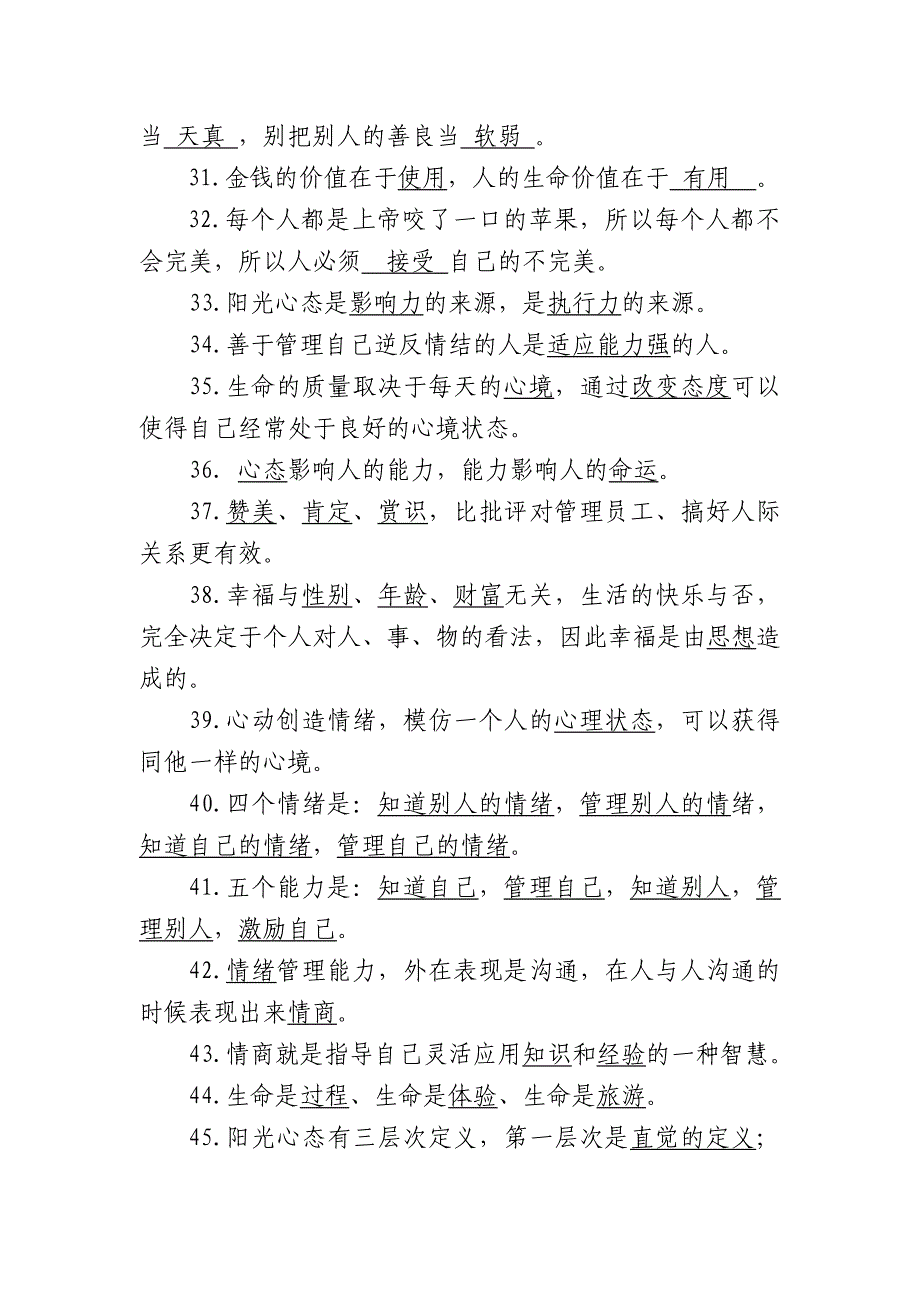 当 天真 ，别把别人的善良当 软弱 。
31.金钱的价值在于使用，人的生命价值在于 有用 。
32.每个人都是上帝咬了一口的苹果，所以每个人都不
会完美，所以人必须 接受 自己的不完美。
33.阳光心态是影响力的来源，是执行力的来源。
34.善于管理自己逆反情结的人是适应能力强的人。
35.生命的质量取决于每天的心境，通过改变态度可以
使得自己经常处于良好的心境状态。
36. 心态影响人的能力，能力影响人的命运。
37.赞美、肯定、赏识，比批评对管理员工、搞好人际
关系更有效。
38.幸福与性别、年龄、财富无关，生活的快乐与否，
完全决定于个人对人、事、物的看法，因此幸福是由思想造
成的。
39.心动创造情绪，模仿一个人的心理状态，可以获得
同他一样的心境。
40.四个情绪是：知道别人的情绪，管理别人的情绪，
知道自己的情绪，管理自己的情绪。
41.五个能力是：知道自己，管理自己，知道别人，管
理别人，激励自己。
42.情绪管理能力，外在表现是沟通，在人与人沟通的
时候表现出来情商。
43.情商就是指导自己灵活应用知识和经验的一种智慧。
44.生命是过程、生命是体验、生命是旅游。
45.阳光心态有三层次定义，第一层次是直觉的定义；